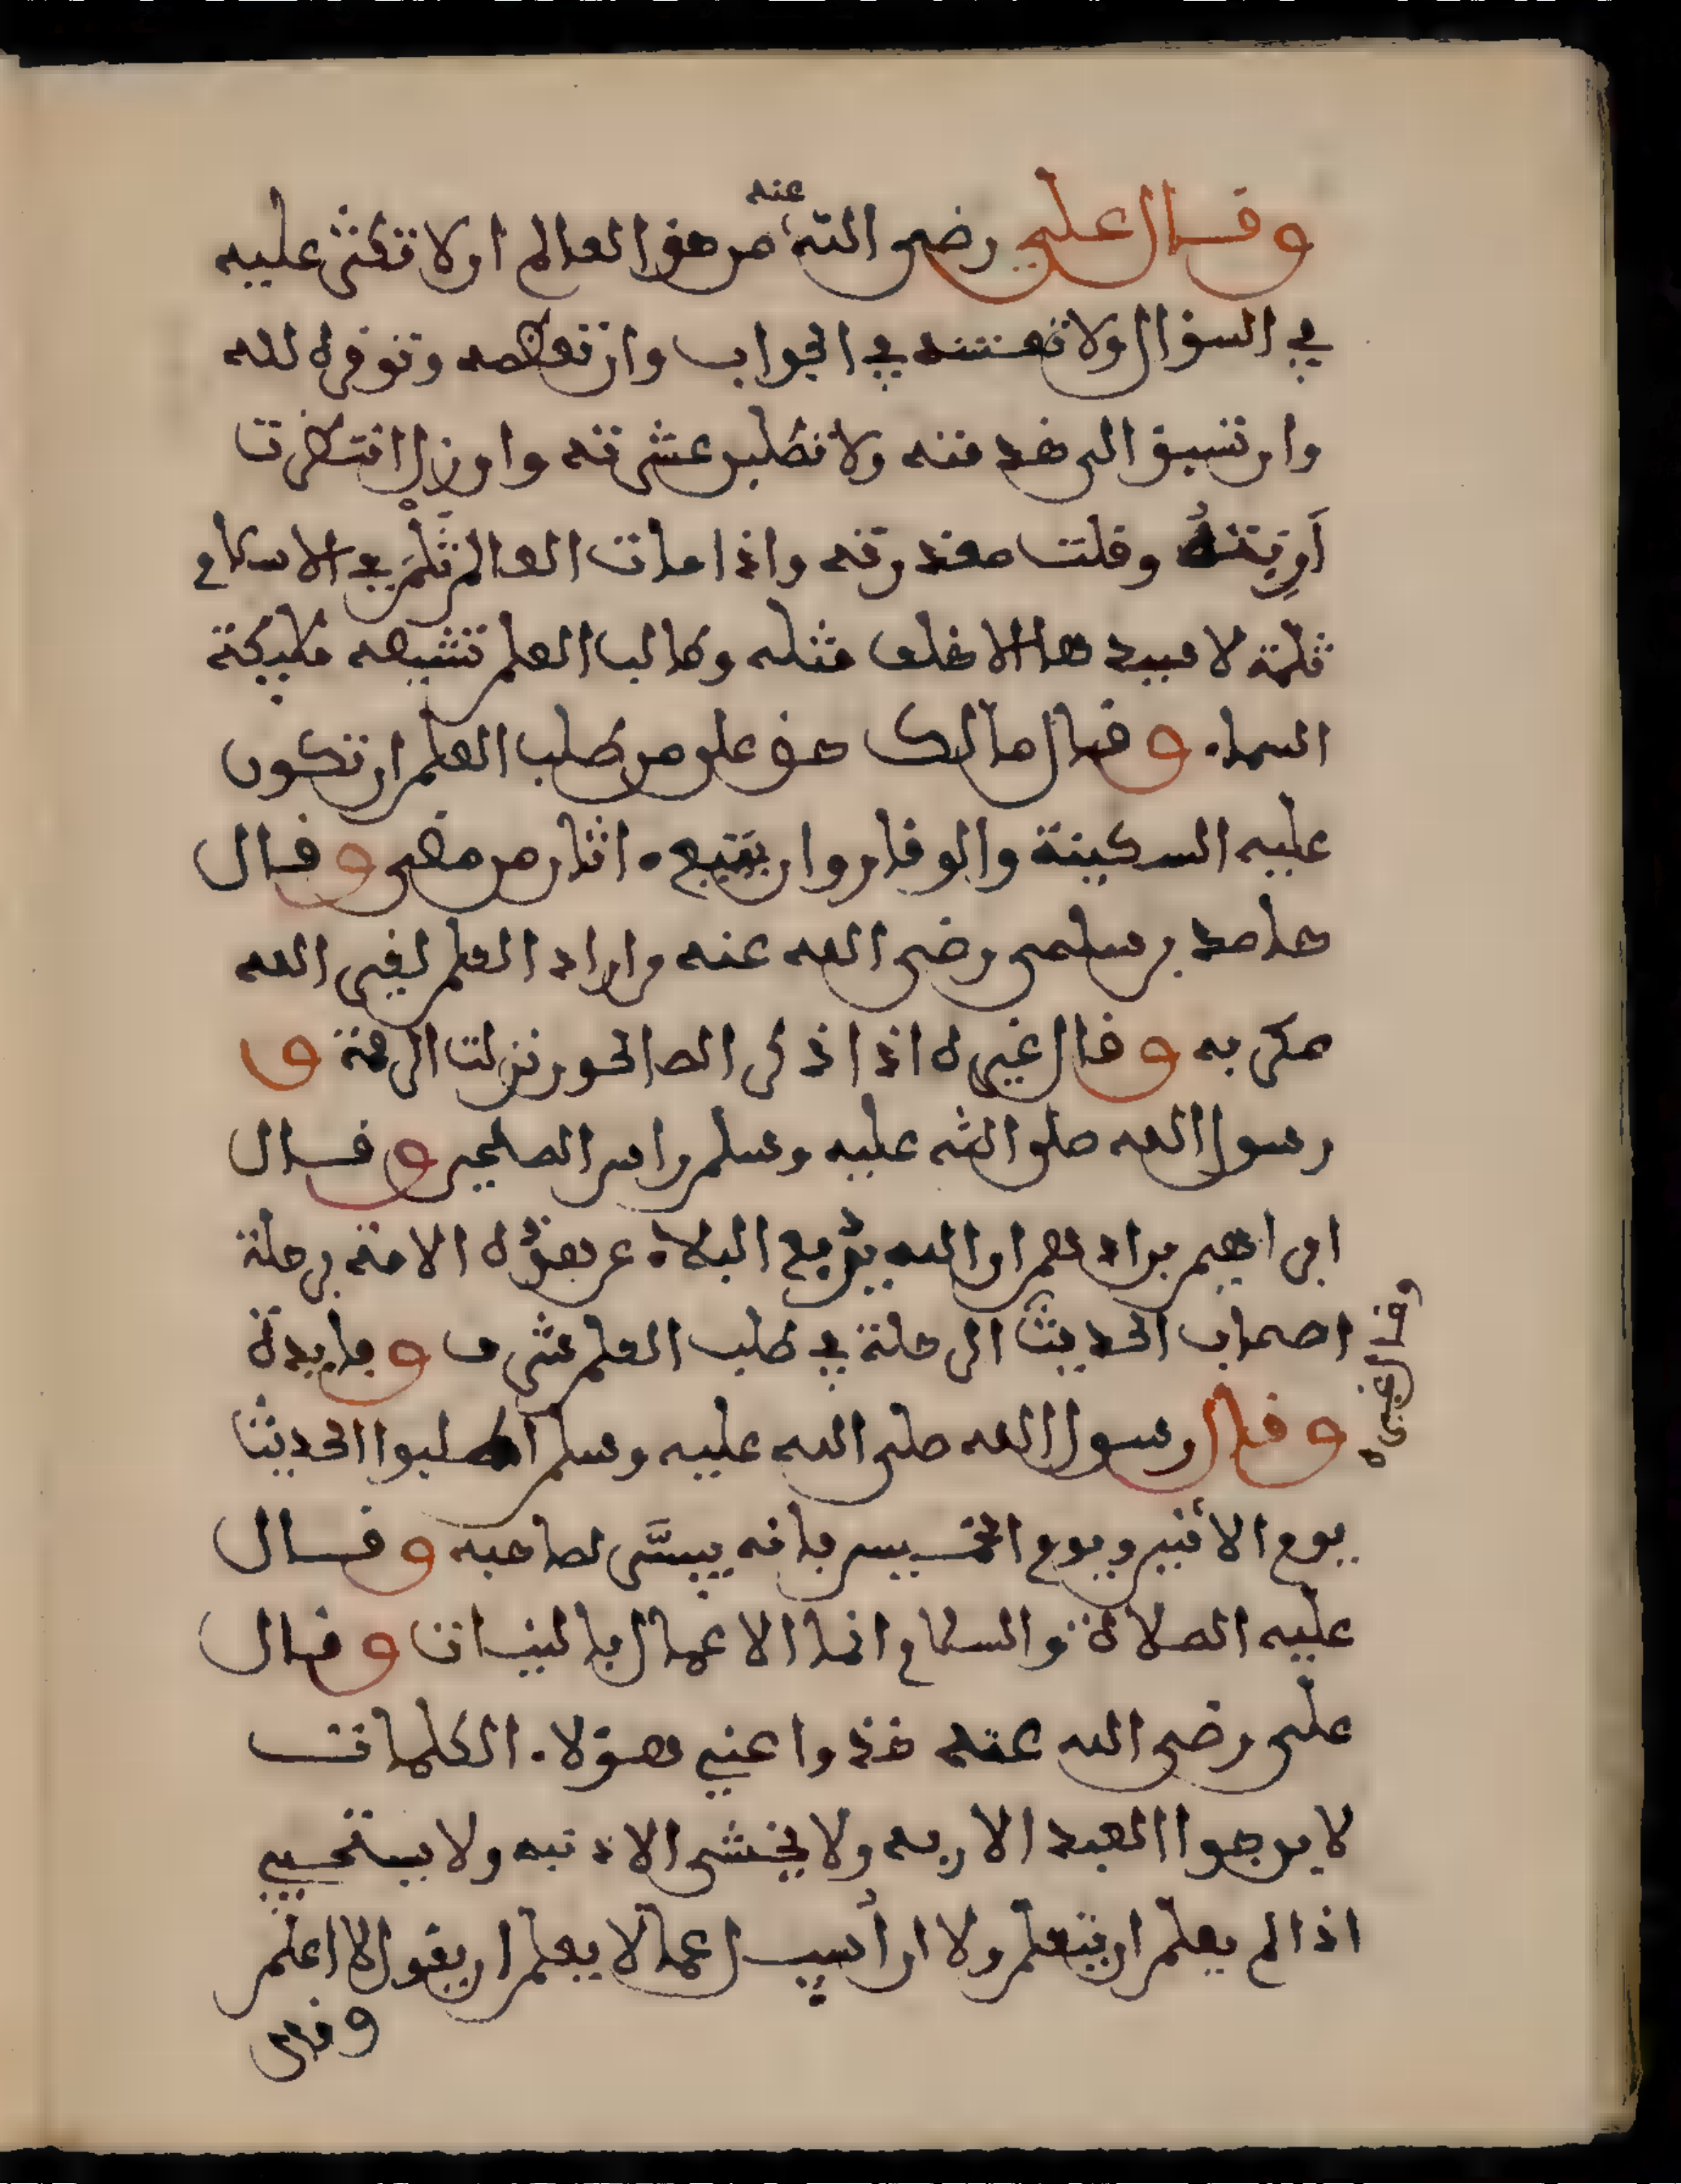 وقال علي رضي الله عنه من حق العالم ان لا تكثر عليه
في السؤال ولا تعنته في الجواب وان تعظمه وتوقره لله
وان تسبق الى خدمته ولا تطلبن عثرته وان زل انتظرت
أوبته وقبلت معذرته واذا مات العالم ثلم في الاسلام
ثلمة لا يسدها الا خلف مثله وطالب العلم تشيعه مليكة
السماء وقال مالك حق على من طلب العلم ان تكون
عليه السكينة والوقار وان يتبع اثار من مضى وقال
حامد بن سلمى رضي الله عنه من اراد العلم لغير الله
مكر به وقال غيره اذا ذكر الصالحون نزلت الرحمة و
رسول الله صلى الله عليه وسلم راس الصلحين وقال
ابراهيم بن ادهم ان الله يرفع البلاء عن هؤلاء الامة برحلة
اصحاب الحديث الرحلة في طلب العلم شرف وفايدة
وقال غيره
وقال رسول الله صلى الله عليه وسلم اطلبوا الحديث
يوم الأثنين ويوم الخميس فانه ييسر لصاحبه وقال
عليه الصلاة والسلام انما الاعمال بالنيات وقال
علي رضي الله عنه خذوا عني هؤلاء الكلمات
لا يرجوا العبد الا ربه ولا يخشى الا ذنبه ولا يستحيي
اذا لم يعلم ان يتعلم ولا ان أسيل عما لا يعلم ان يقول لا اعلم
وقال